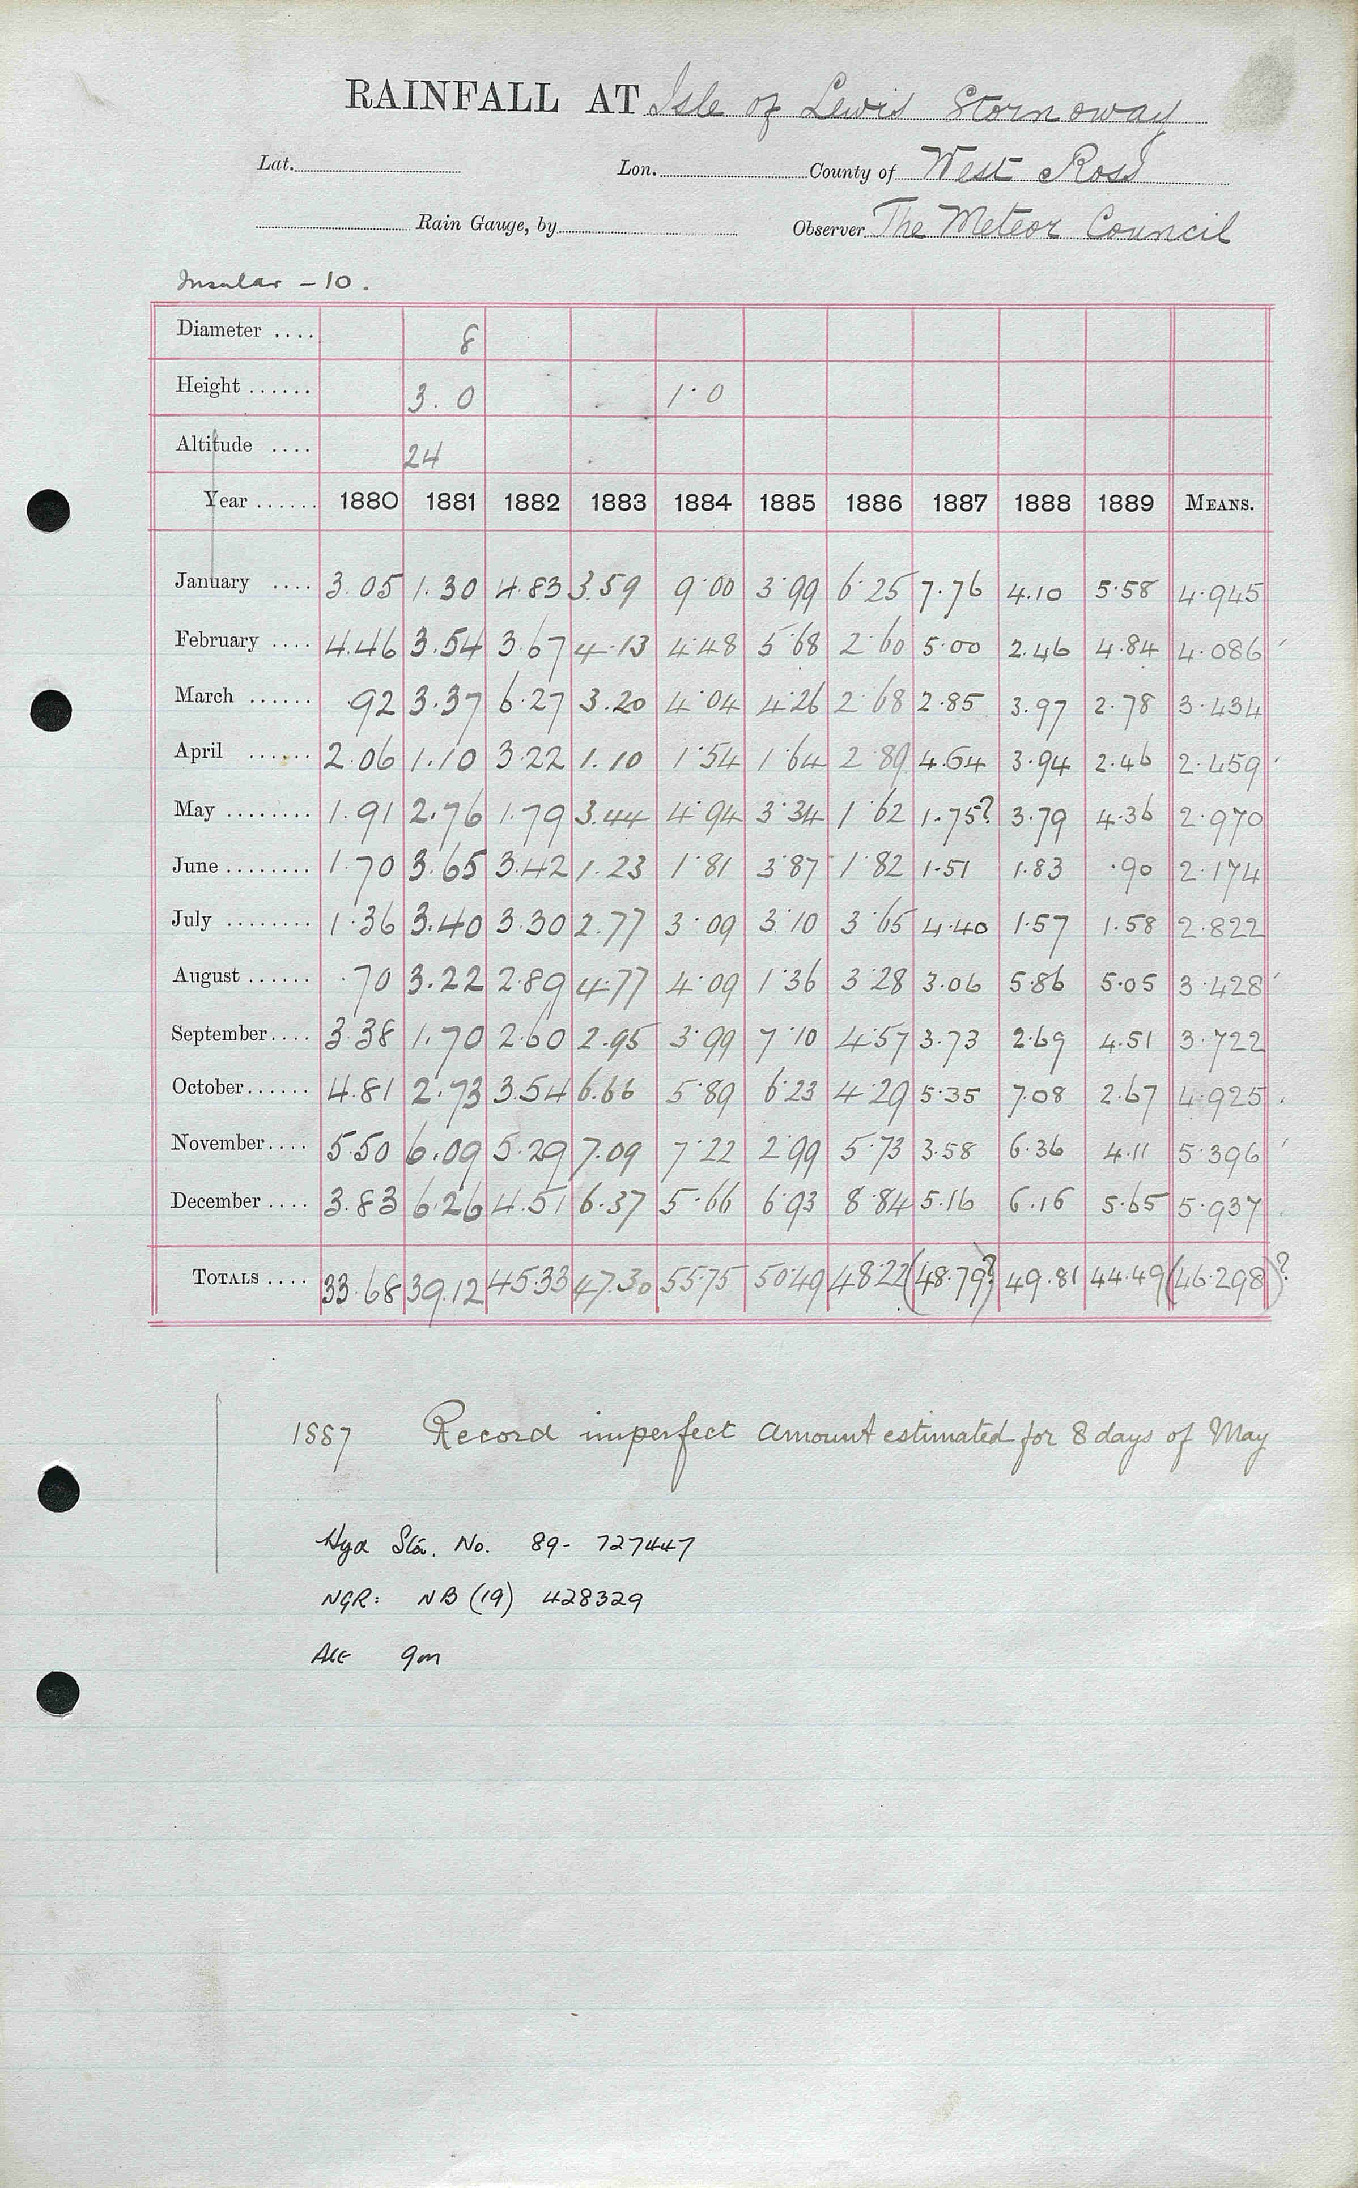 RAINFALL AT Isle of Lewis Stornoway
Lat. Lon. County of West Ross
Rain Gauge, by Observer The Meteor Council
Insular - 10.
Diameter .... 8
Height ...... 3.0 1.0
Altitude .... 24
Year ...... 1880 1881 1882 1883 1884 1885 1886 1887 1888 1889 MEANS.
January .... 3.05 1.30 4.83 3.59 9.00 3.99 6.25 7.76 4.10 5.58 4.945
February .... 4.46 3.54 3.67 4.13 4.48 5.68 2.60 5.00 2.46 4.84 4.086
March ...... .92 3.37 6.27 3.20 4.04 4.26 2.68 2.85 3.97 2.78 3.434
April ...... 2.06 1.10 3.22 1.10 1.54 1.64 2.89 4.64 3.94 2.46 2.459
May ........ 1.91 2.76 1.79 3.44 4.94 3.34 1.62 1.75? 3.79 4.36 2.970
June ........ 1.70 3.65 3.42 1.23 1.81 3.87 1.82 1.51 1.83 .90 2.174
July ........ 1.36 3.40 3.30 2.77 3.09 3.10 3.65 4.40 1.57 1.58 2.822
August ...... .70 3.22 2.89 4.77 4.09 1.36 3.28 3.06 5.86 5.05 3.428
September.... 3.38 1.70 2.60 2.95 3.99 7.10 4.57 3.73 2.69 4.51 3.722
October...... 4.81 2.73 3.54 6.66 5.89 6.23 4.29 5.35 7.08 2.67 4.925
November.... 5.50 6.09 5.29 7.09 7.22 2.99 5.73 3.58 6.36 4.11 5.396
December .... 3.83 6.26 4.51 6.37 5.66 6.93 8.84 5.16 6.16 5.65 5.937
TOTALS .... 33.68 39.12 45.33 47.30 55.75 50.49 48.22 (48.79?) 49.81 44.49 (46.298)?
1887 Record imperfect amount estimated for 8 days of May
Hyd Sta. No. 89- 727447
NGR: NB (19) 428329
Alt 9m